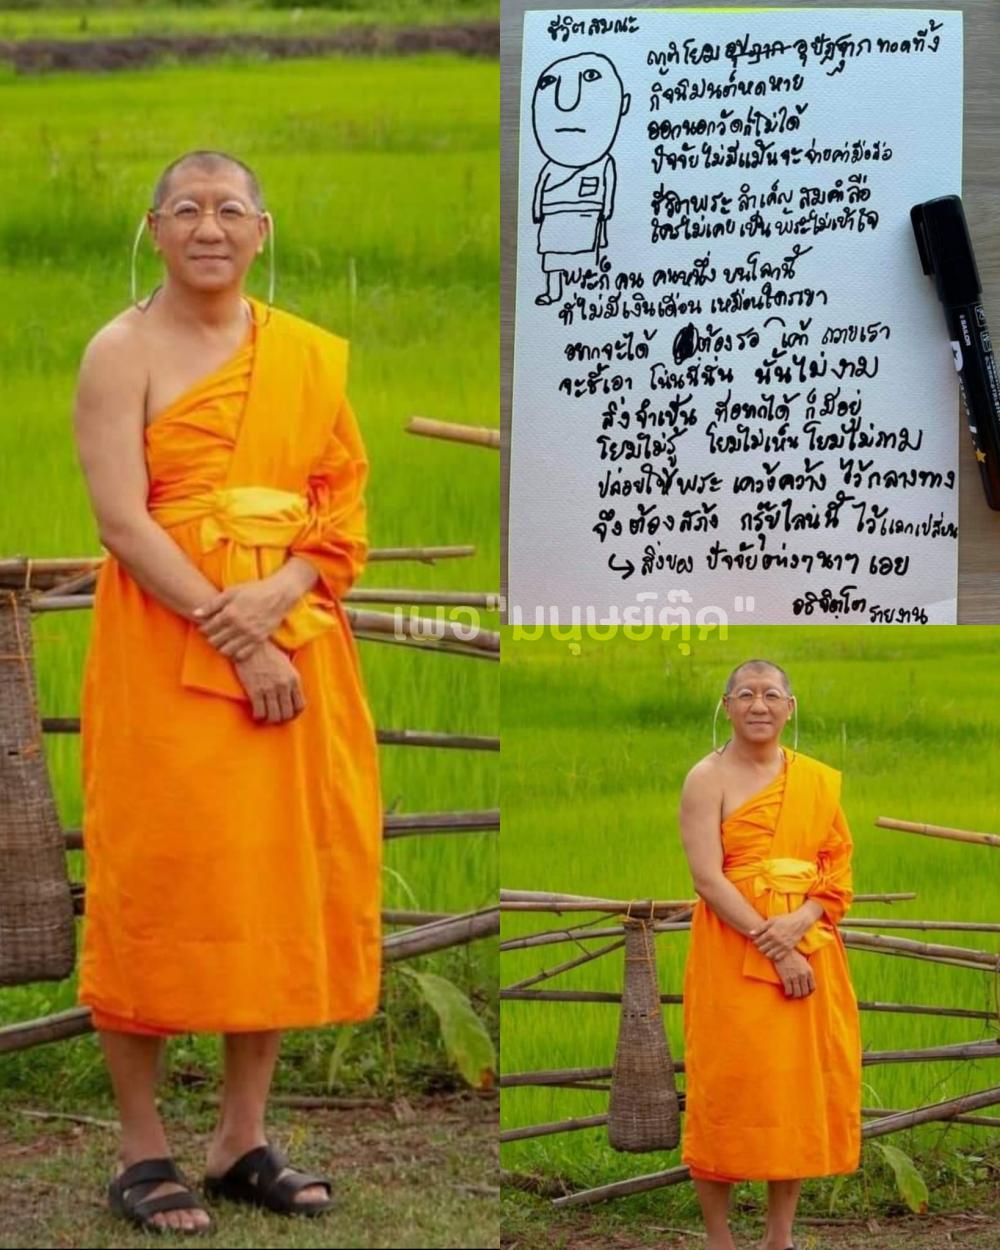 ชีวิตสมณะ
ญาติโยม อุปัฏฐาก ทอดทิ้ง
กิจนิมนต์หดหาย
ออกนอกวัดก็ไม่ได้
ปัจจัยไม่มีแม้นจะจ่ายค่ามือถือ
ชีวิตพระ สำเค็ญ สมคำลือ
ใครไม่เคยเป็น พระไม่เข้าใจ
พระก็คน คนหนึ่ง บนโลกนี้
ที่ไม่มีเงินเดือน เหมือนใครเขา
อยากจะได้ ต้องรอ เค้า ถวายเรา
จะชี้เอา โน่นนี่นั่น นั้นไม่งาม
สิ่งจำเป็น ที่อยากได้ ก็มีอยู่
โยมไม่รู้ โยมไม่เห็น โยมไม่ถาม
ปล่อยให้พระ เคว้งคว้าง ไว้กลางทาง
จึงต้องสภ้ง กรุ๊ปไลน์นี้ ไว้แลกเปลี่ยน
↳ สิ่งของ ปัจจัยต่างๆนาๆ เอย
อธิจิตฺโต
รายงาน
เพจ"มนุษย์ตุ๊ด"